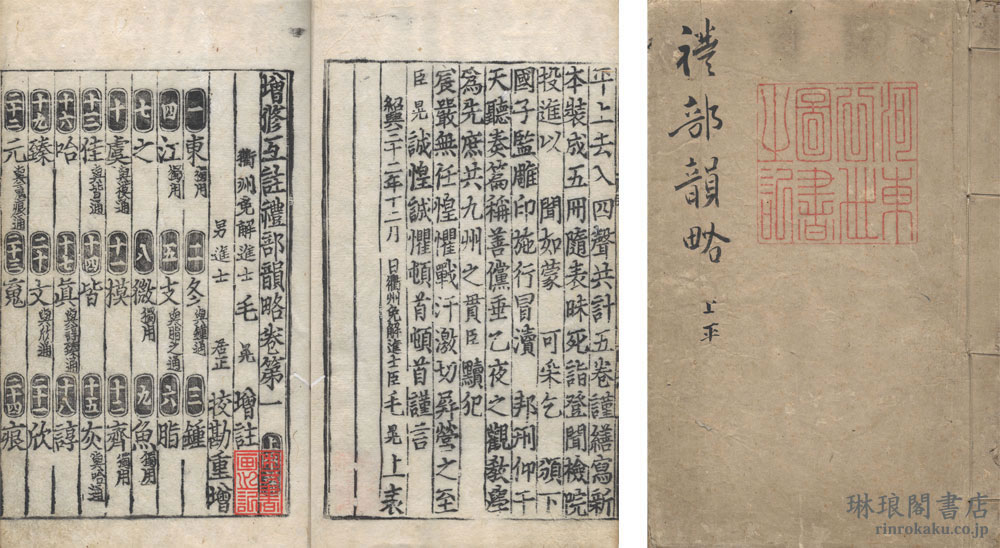 禮部韻略 上平
河東
圖書
平上去入四聲共計五卷謹繕寫新
本裝成五冊隨表昧死詣登聞檢院
投進以 聞如蒙 可采乞 頒下
國子監雕印施行冒瀆 邦刑仰干
天聽奏篇稱善儻垂乙夜之觀敎塾
為先庶共九州之貫臣 黷犯
宸嚴無任惶懼戰汗激切屛營之至
臣晃誠惶誠懼頓首頓首謹言
紹興三十二年十二月 日衢州免解進士臣毛晃上表
增修互註禮部韻略卷第一 上
衢州免解進士 毛 晃 增註
男進士 居正 校勘重增
一東獨用 二冬與鍾通 三鍾
四江獨用 五支與脂之通 六脂
七之 八微獨用 九魚獨用
十虞與模通 十一模 十二齊獨用
十三佳與皆通 十四皆 十五灰與咍通
十六咍 十七眞與諄臻通 十八諄
十九臻 二十文與欣通 二十一欣
二十二元與魂痕通 二十三魂 二十四痕
琳琅閣書店
rinrokaku.co.jp